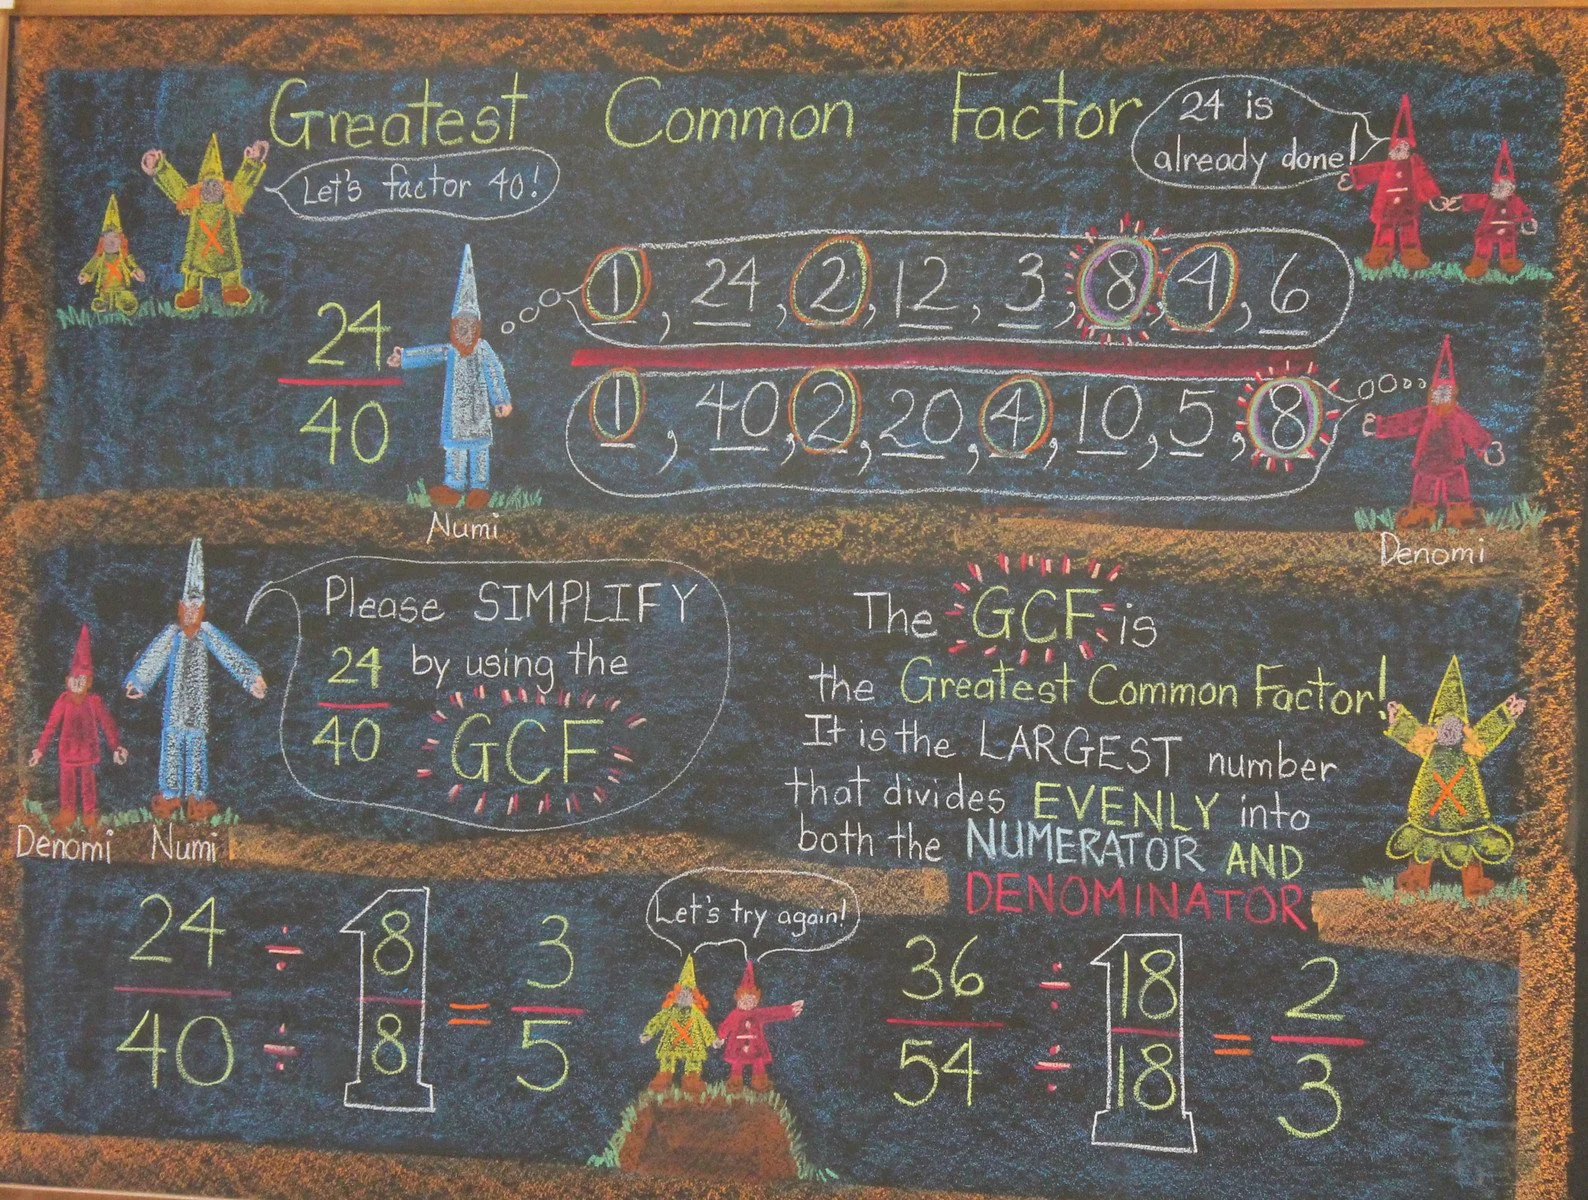 Greatest Common Factor
Let's factor 40!
24 is
already done!
24
40
1, 24, 2, 12, 3, 8, 4, 6
1, 40, 2, 20, 4, 10, 5, 8
Numi
Denomi
Please SIMPLIFY
24 by using the
40 GCF
Denomi Numi
The GCF is
the Greatest Common Factor!
It is the LARGEST number
that divides EVENLY into
both the NUMERATOR AND
DENOMINATOR
X
X
X
24 ÷ 8 = 3
40 ÷ 8 5
Let's try again!
X
36 ÷ 18 = 2
54 ÷ 18 3